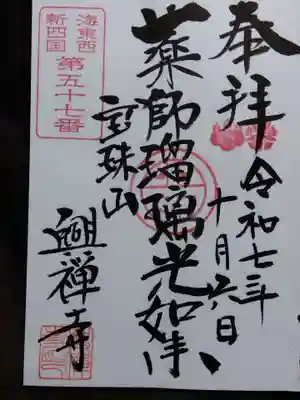 奉拝
令和七年
十月六日
薬師瑠璃光如来
宝珠山
興禅寺
海東西
新四国
第五十七番